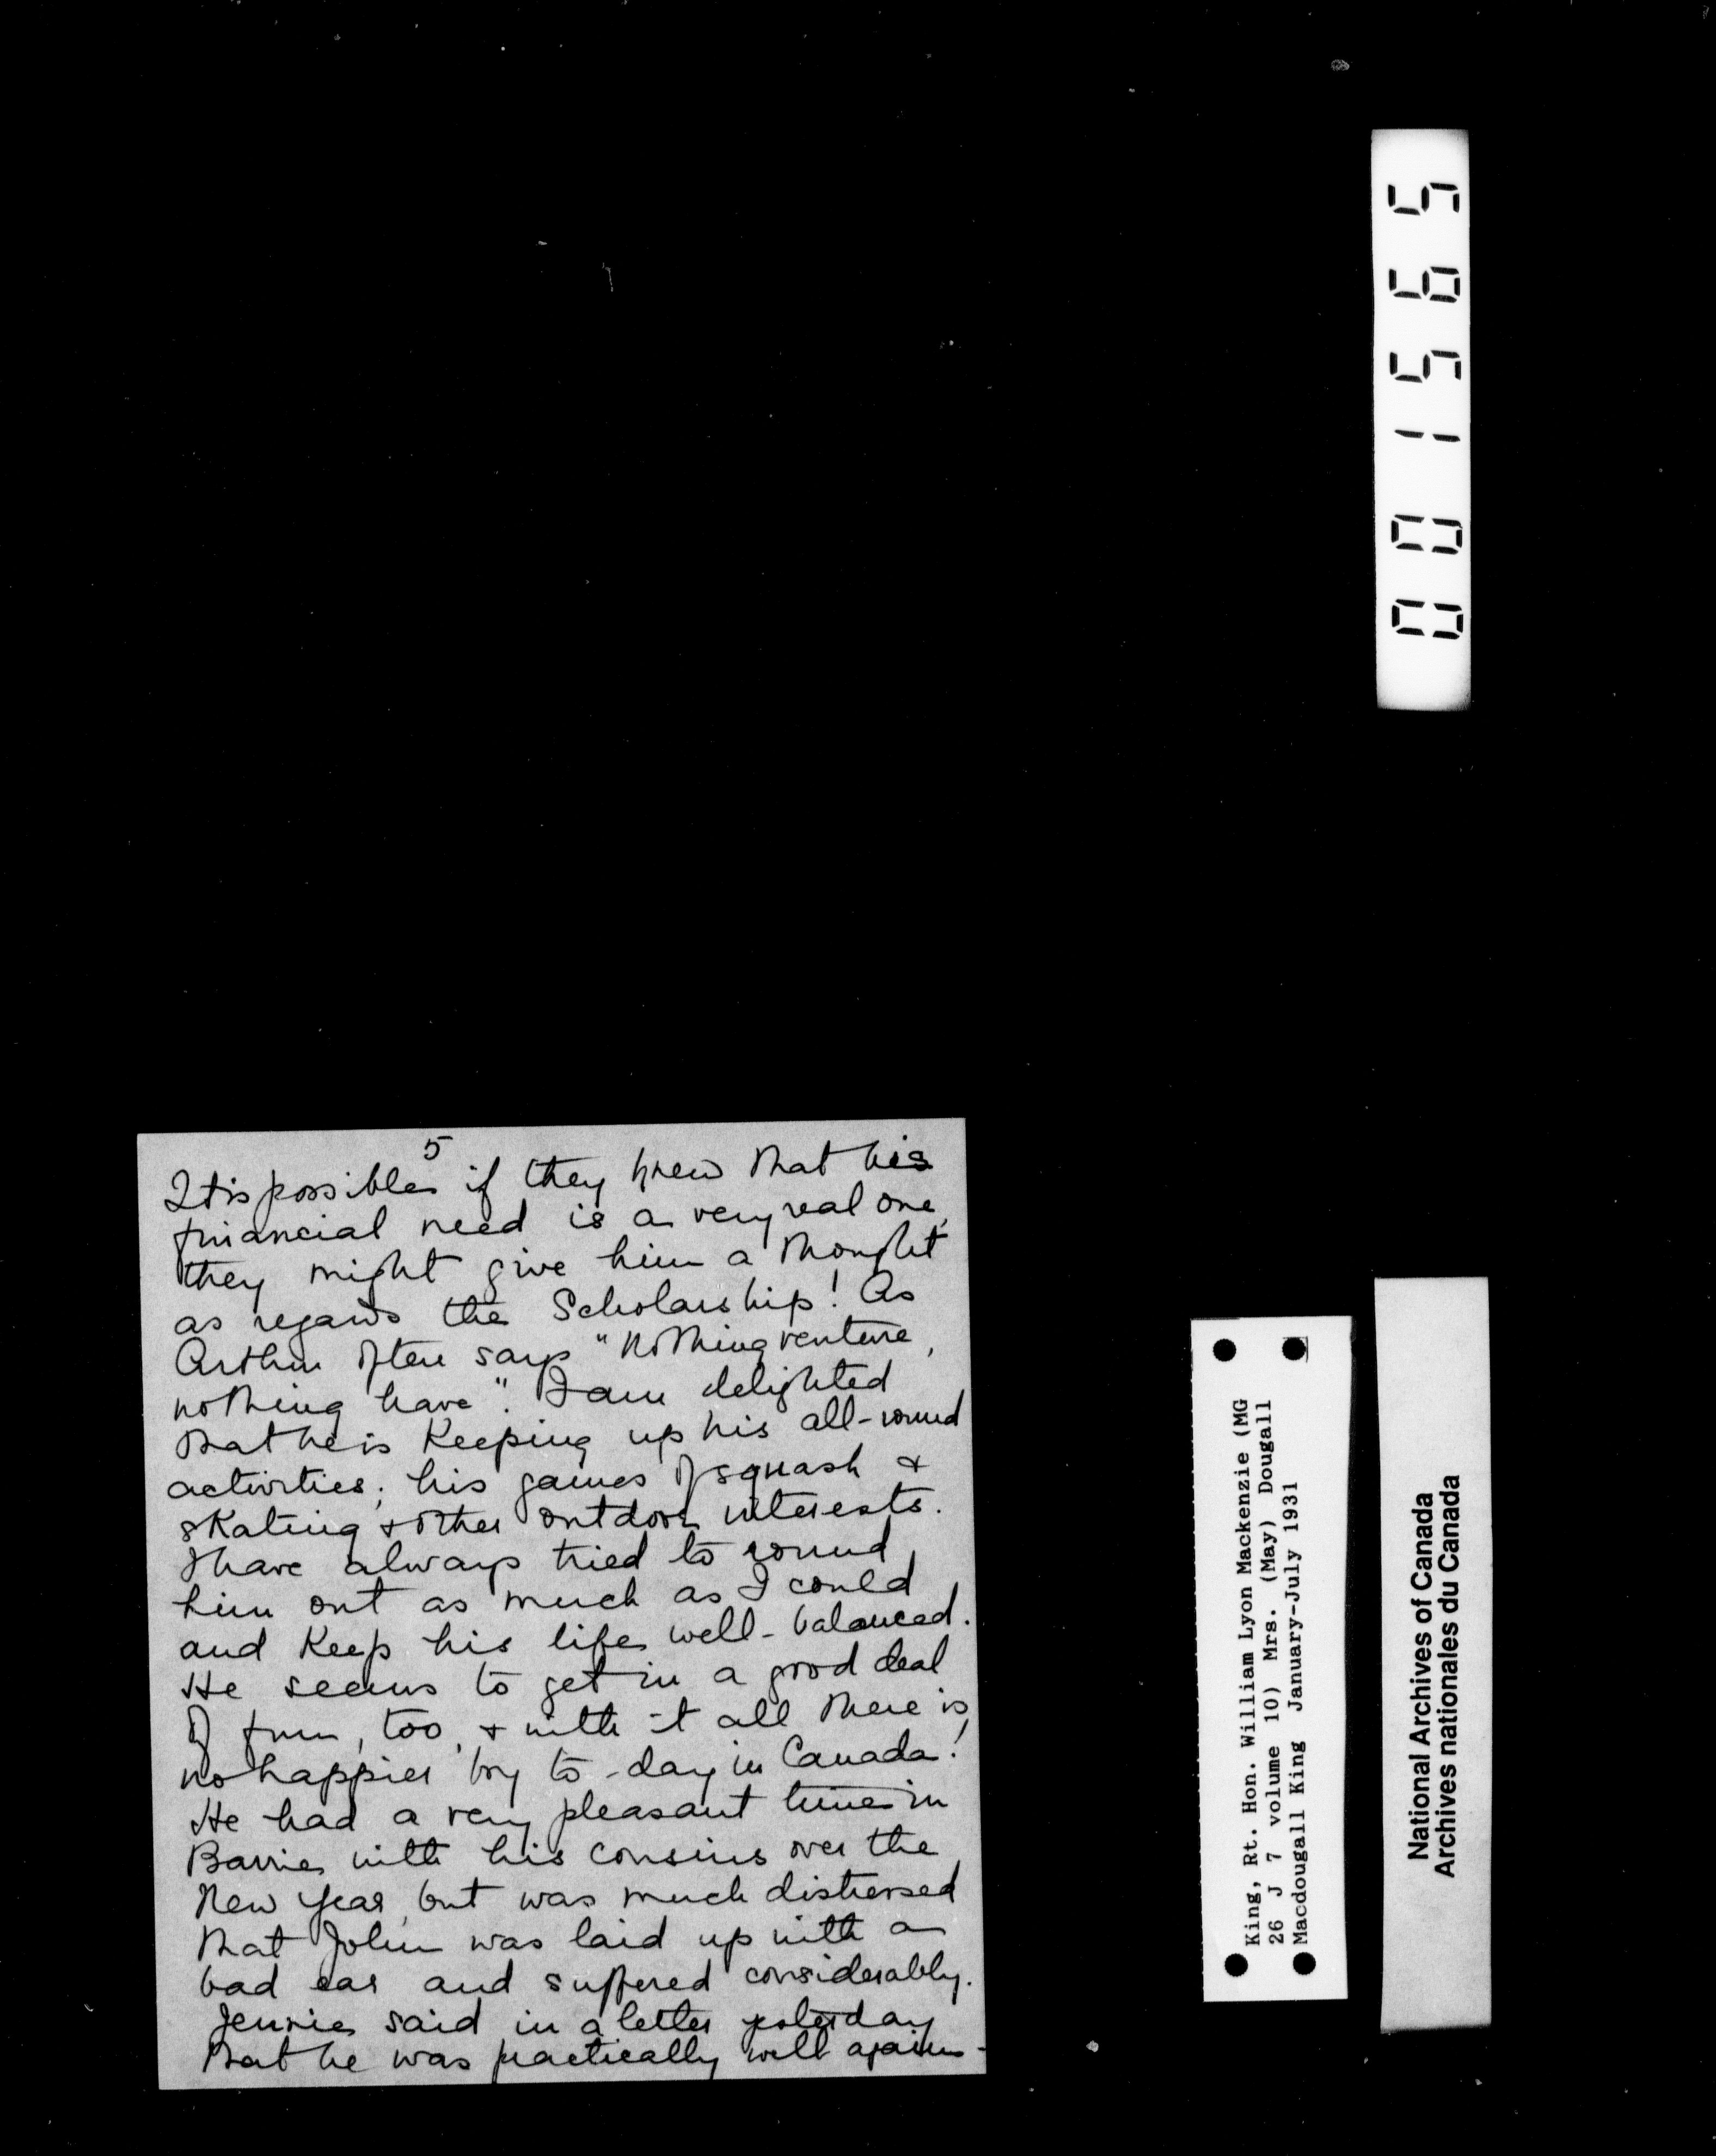 5
It is possible if they knew that his
financial need is a very real one,
they might give him a thought
as regards the Scholarship! As
Arthur often says "Nothing venture,
nothing have". I am delighted
that he is keeping up his all-round
activities; his games of squash &
skating & other outdoor interests.
I have always tried to round
him out as much as I could
and keep his life well-balanced.
He seems to get in a good deal
of fun, too, & with it all there is
no happier boy to-day in Canada!
He had a very pleasant time in
Barrie with his cousins over the
New Year, but was much distressed
that John was laid up with a
bad ear and suffered considerably.
Jennie said in a letter yesterday
that he was practically well again -
001565
King, Rt. Hon. William Lyon Mackenzie (MG
26 J 7 volume 10) Mrs. (May) Dougall
Macdougall King January-July 1931
National Archives of Canada
Archives nationales du Canada